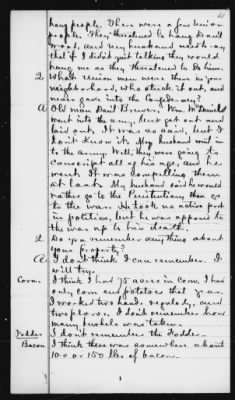 hang people. There were a few Union
people. They threatened to hang Dan'l
and my husband used to say
that if I didn't quit talking they would
hang me as they threatened to do him.
Q What Union men were there in your
neighborhood, who stuck it out, and
never gave into the Confederacy?
A Old man Dan'l Wm
went into the army, but got out and
laid out, It was so again, but I
don't know it. My husband went in
to the Army. Well, they were going to
conscript all of his age, and he
went. It was compelling them
at last. My husband said he would
rather go to the Penitentiary than go
to the war. He took an active part
in politics, but he was opposed to
the war up to his death.
Q Do you remember anything about
your property?
A I don't think I can remember. I
will try.
Corn. I think I had 75 acres in Corn, I had
oats, corn and potatoes that year.
I worked two hands regularly, and
two plows. I don't remember how
many bushels was taken.
Fodder I don't remember the Fodder.
Bacon I think there was somewhere about
100 or 150 lbs of bacon.